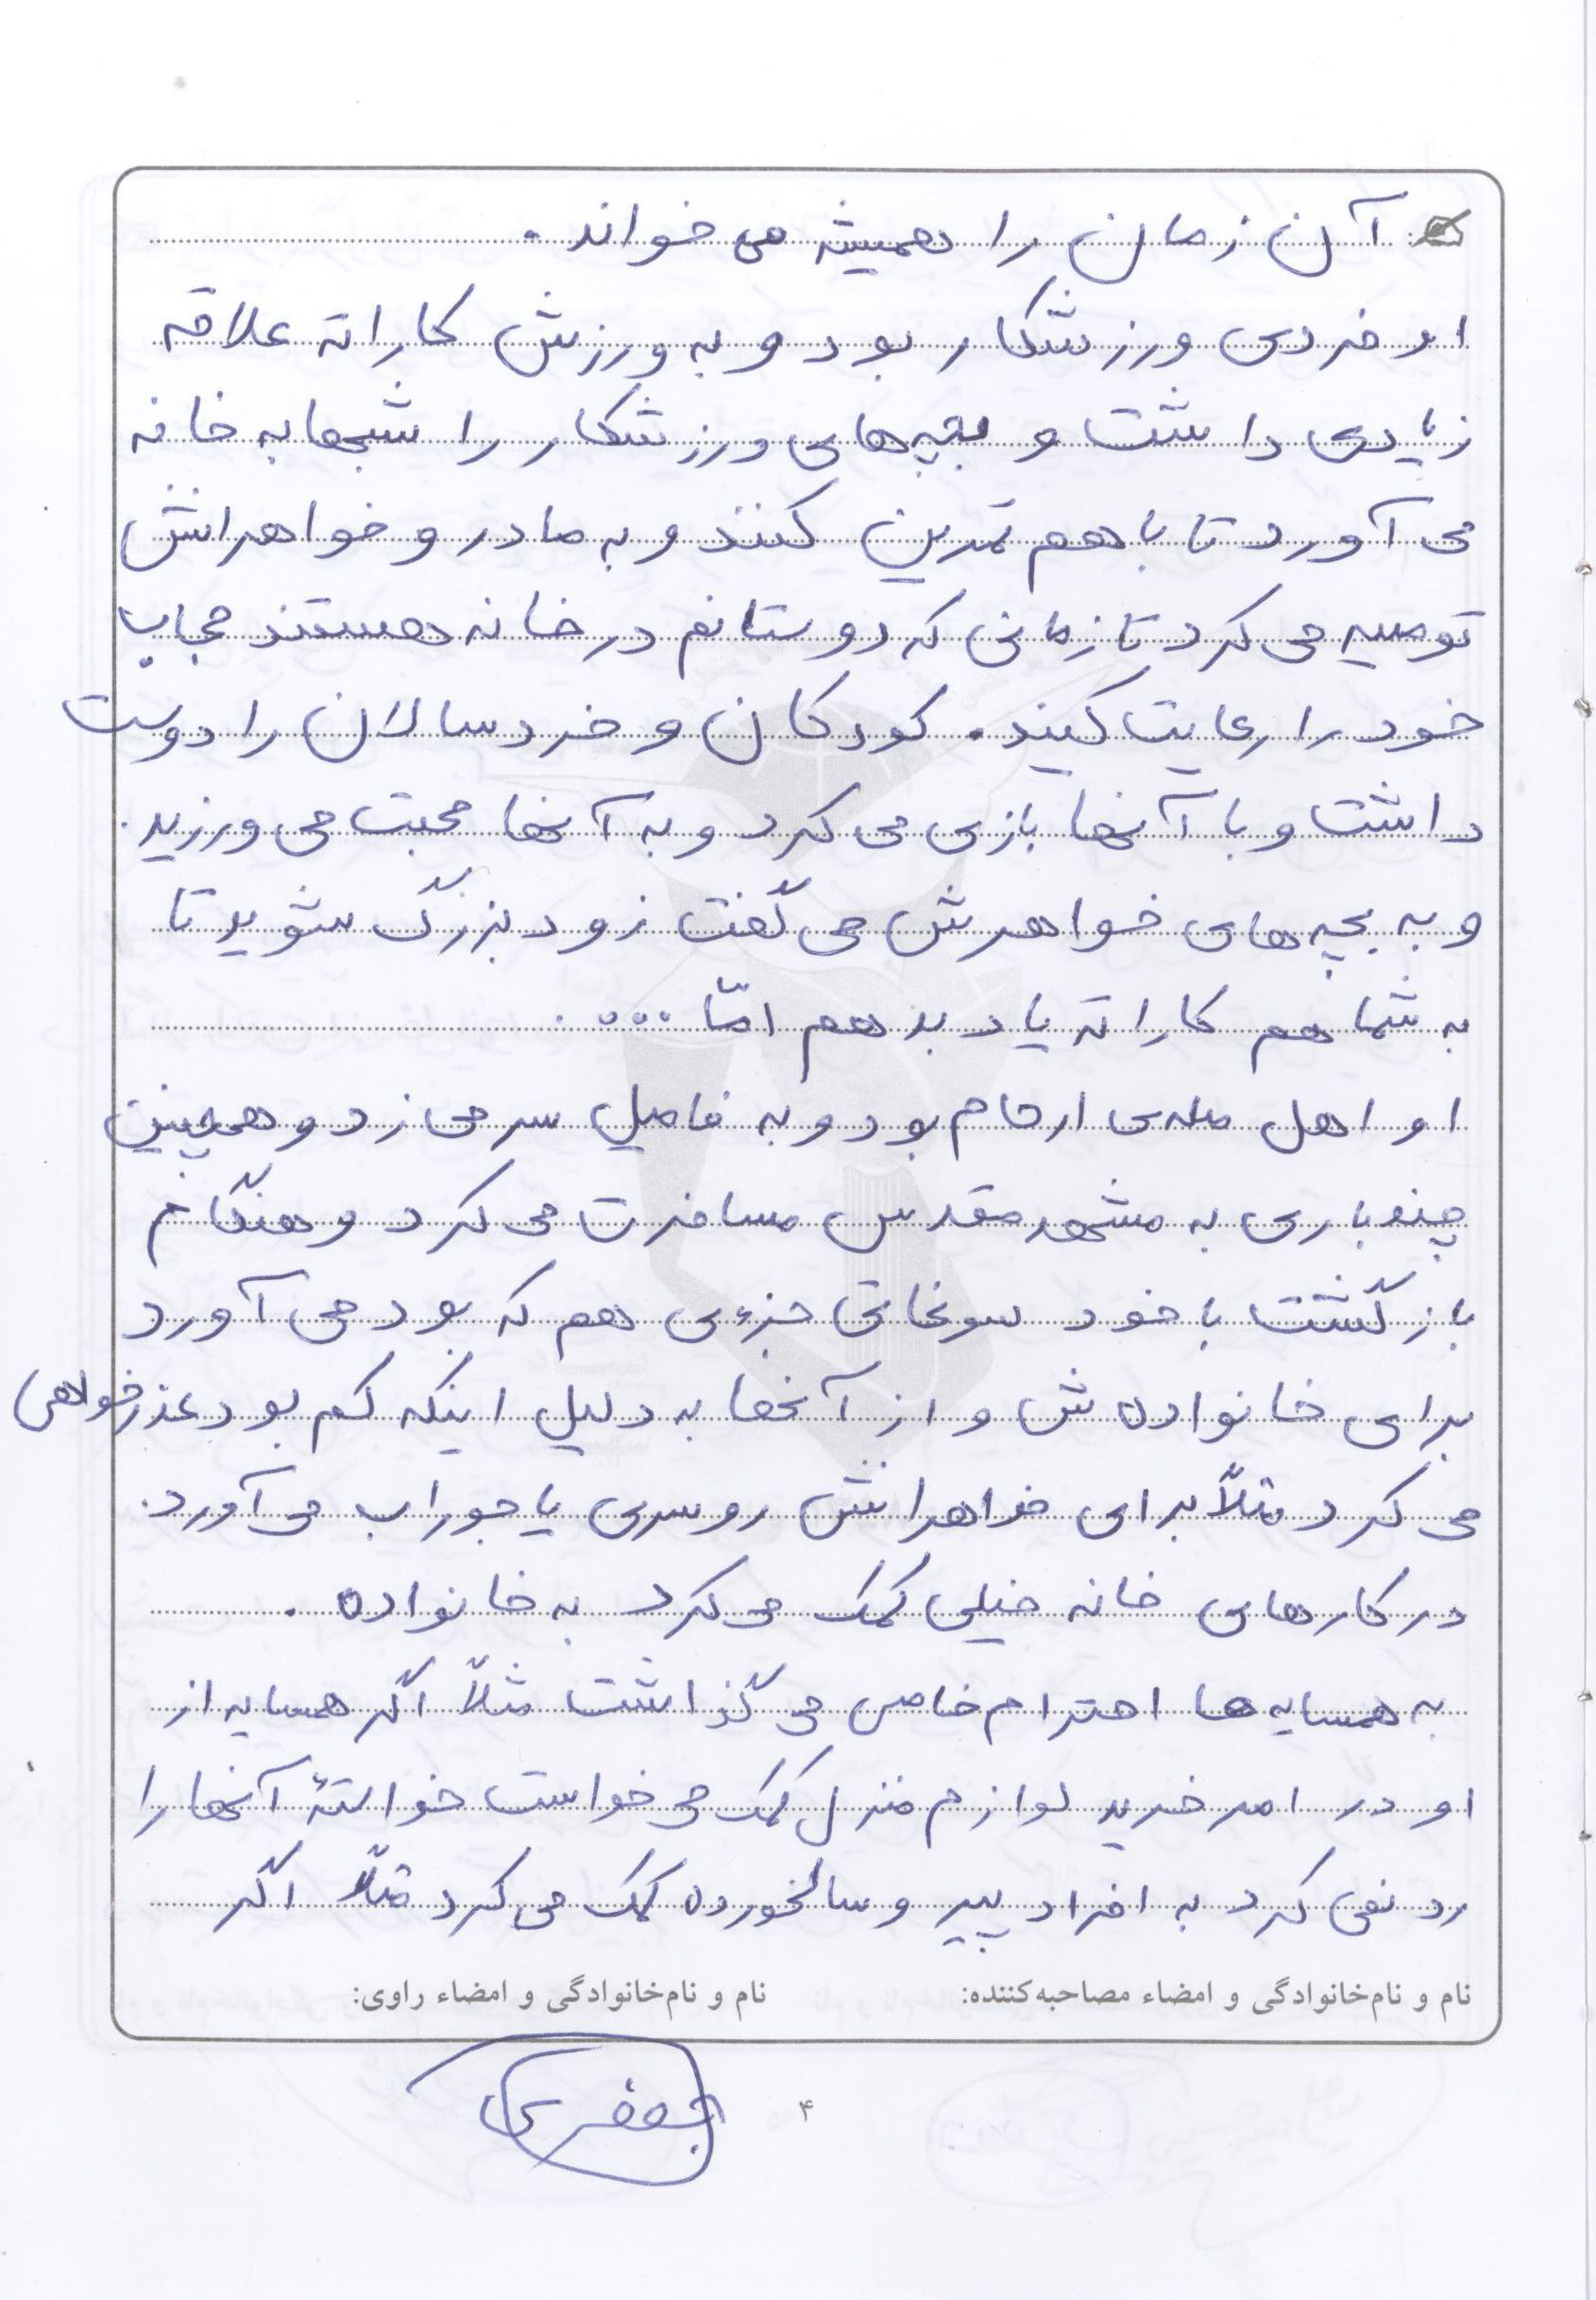 آن زمان را همیشه می خواند.
او فردی ورزشکار بود و به ورزش کاراته علاقه
زیادی داشت و بچه‌های ورزشکار را شبها به خانه
می آورد تا با هم تمرین کنند و به مادر و خواهرانش
توصیه می کرد تا زمانی که دوستانم در خانه هستند حجاب
خود را رعایت کنید. کودکان و خردسالان را دوست
داشت و با آنها بازی می کرد و به آنها محبت می ورزید.
و به بچه های خواهرش می گفت زود بزرگ شوید تا
به شما هم کاراته یاد بدهم امّا ....
او اهل صله‌ی ارحام بود و به فامیل سر می زد و همچنین
چند باری به مشهد مقدس مسافرت می کرد و هنگام
بازگشت با خود سوغاتی جزءی هم که بود می آورد
برای خانواده ش و از آنها به دلیل اینکه کم بود عذرخواهی
می کرد مثلاً برای خواهرانش روسری یا جوراب می آورد.
در کارهای خانه خیلی کمک می کرد به خانواده.
به همسایه ها احترام خاصی می گذاشت مثلاً اگر همسایه از
او در امر خرید لوازم منزل کمک می خواست خواستهٔ آنها را
رد نمی کرد به افراد پیر و سالخورده کمک می کرد مثلاً اگر
نام و نام‌خانوادگی و امضاء مصاحبه‌کننده: نام و نام‌خانوادگی و امضاء راوی:
جعفری
۴